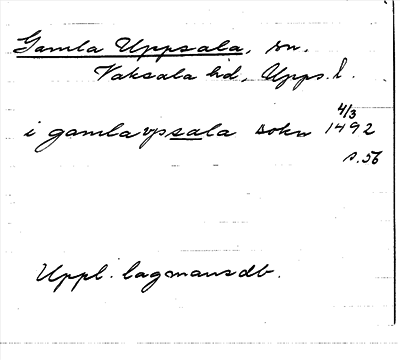 Gamla Uppsala, sn.
Vaksala hd, Upps. l.
4/3
i gamla vpsala sokn 1492
s. 56
Uppl. lagmansdb.